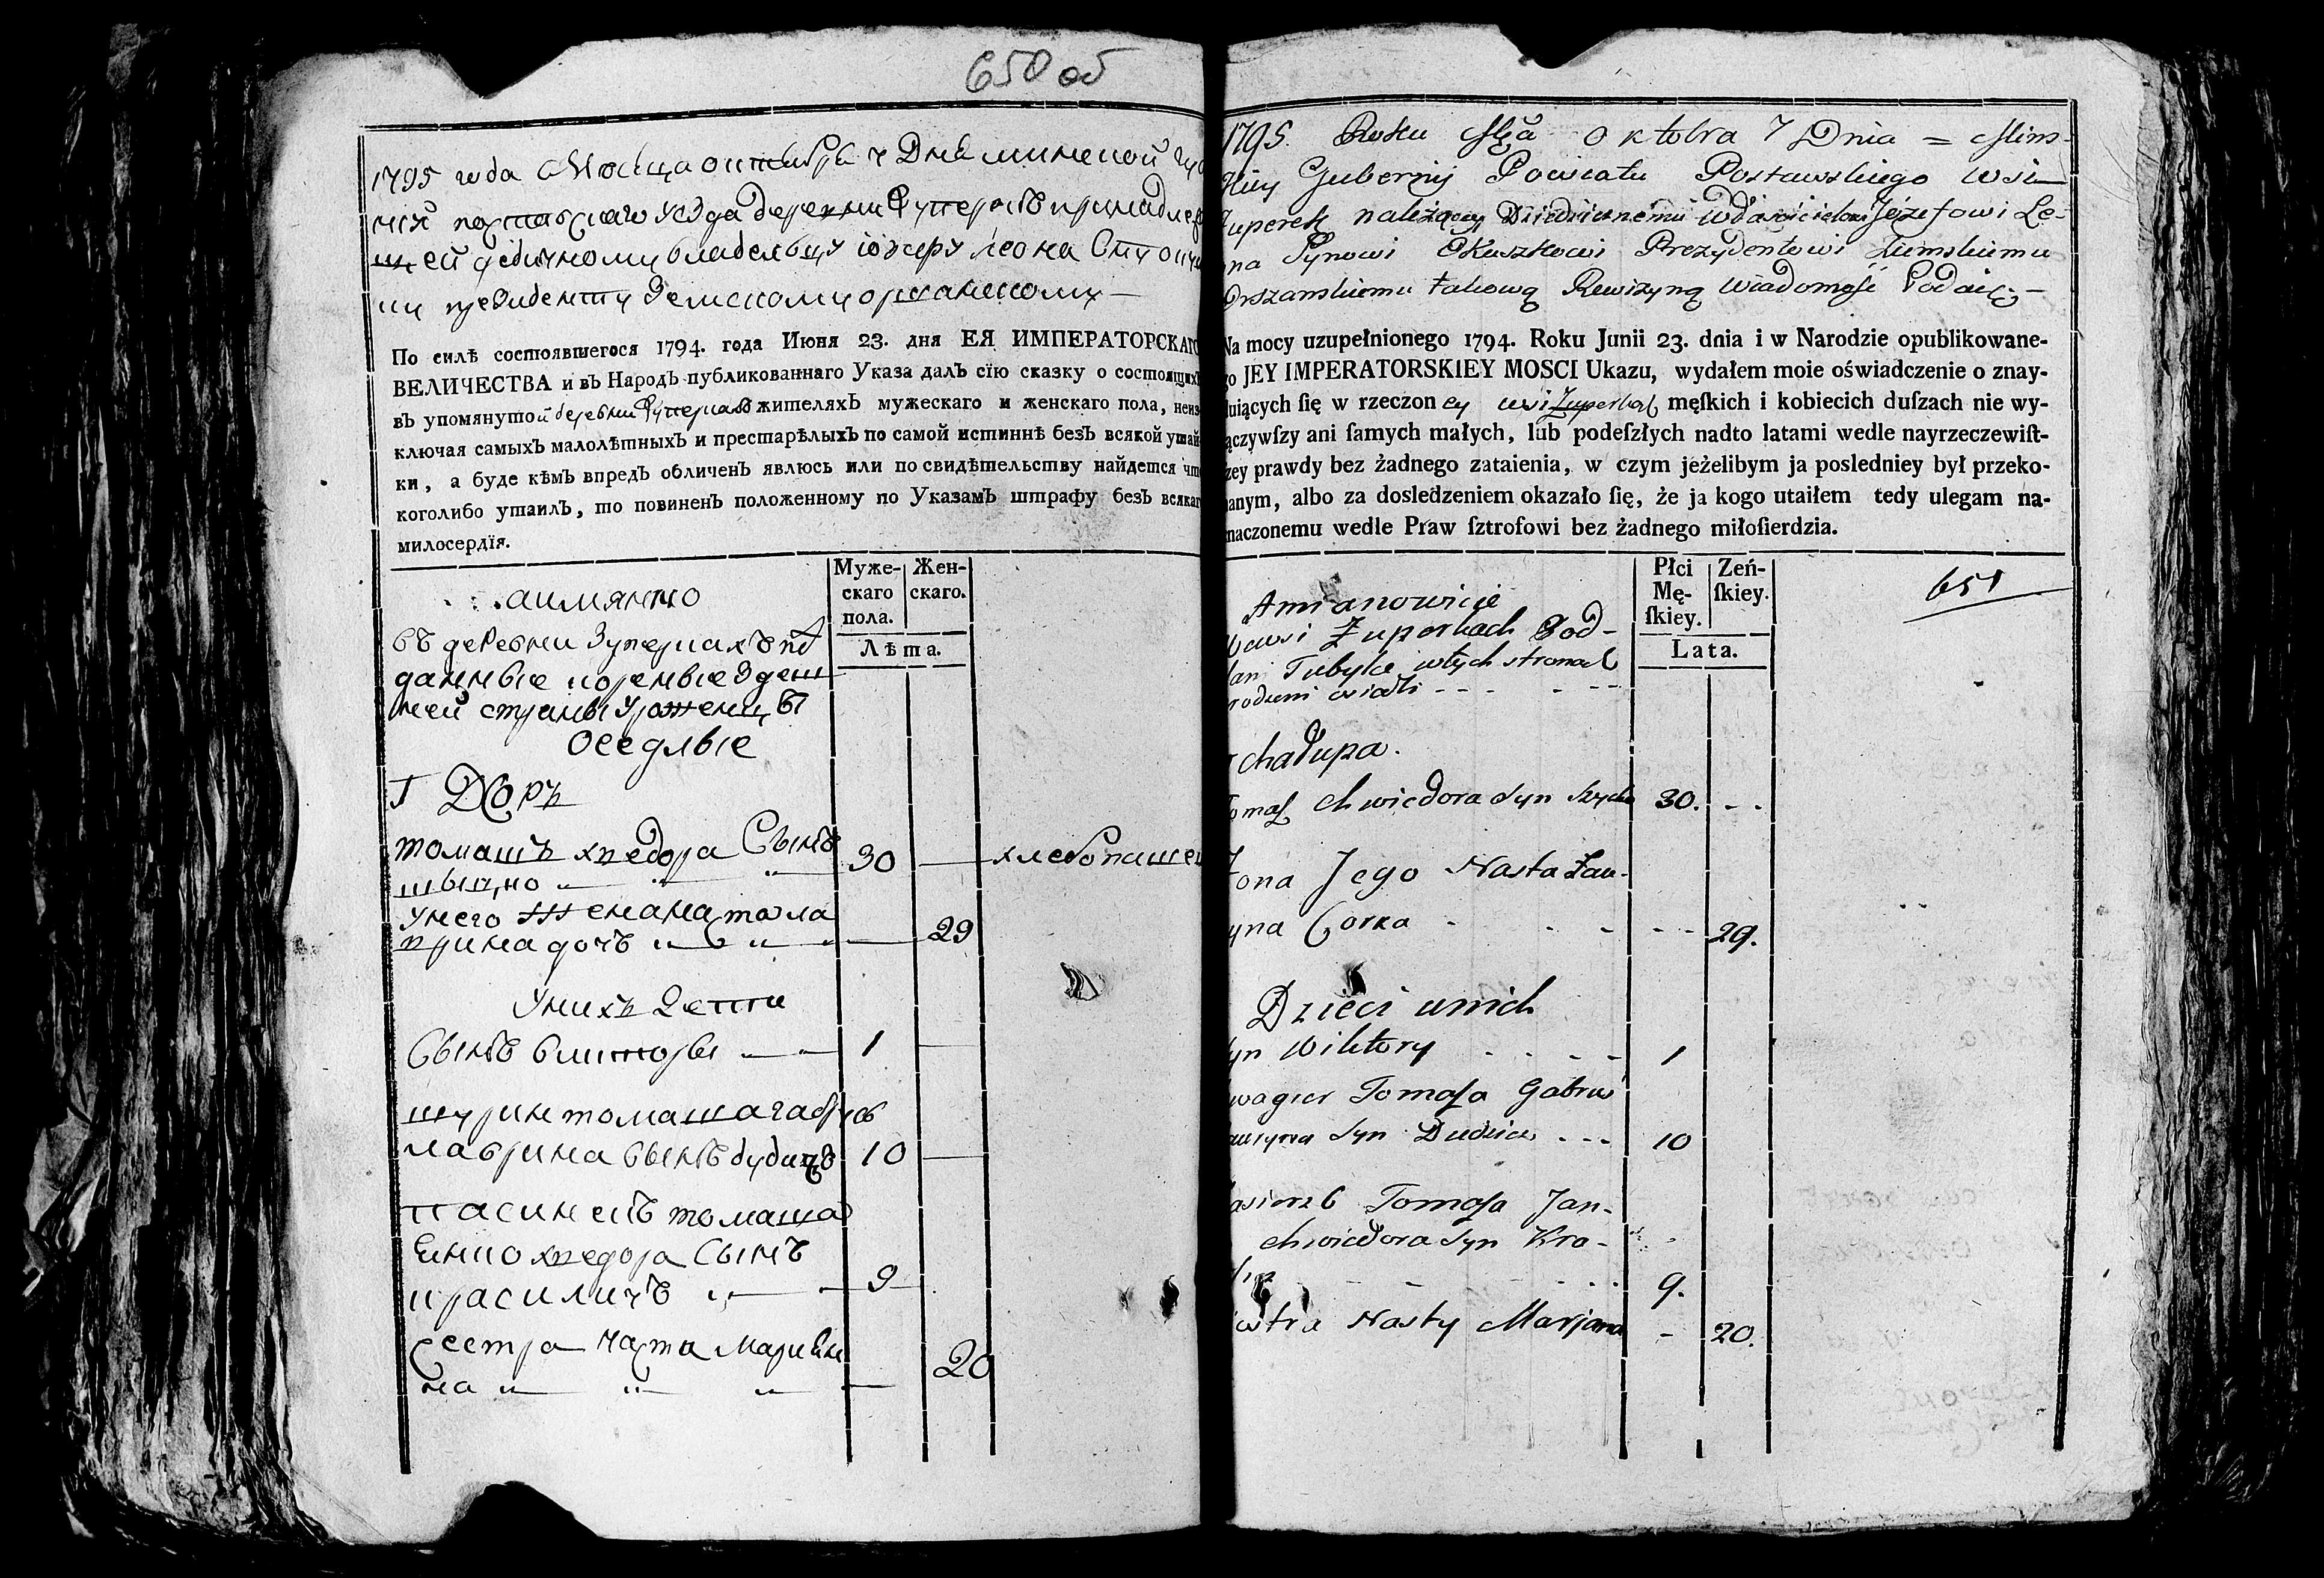 650 об
1795 года Месяца октября 7 Дня минской гу
нии поставскаго уезда деревни Зуперокъ принадлеж
щей дедичному владельцу юзефу леона Сыну
ку президенту Земскому оршанскому —
По силѣ состоявшегося 1794. года Июня 23. дня ЕЯ ИМПЕРАТОРСКАГО
ВЕЛИЧЕСТВА и въ Народъ публикованнаго Указа далъ сїю сказку о состоящихъ
въ упомянутой деревни Зуперкахъ жителяхъ мужескаго и женскаго пола, неиз
ключая самыхъ малолѣтныхъ и престарѣлыхъ по самой истиннѣ безъ всякой утай
ки, а буде кѣмъ впредъ обличенъ явлюсь или по свидѣтельству найдется что
коголибо утаилъ, то повиненъ положенному по Указамъ штрафу безъ всякаго
милосердїя.
Муже- скаго пола.
Жен- скаго.
Лѣта.
аимянно
въ деревни Зуперкахъ под
данные коренные Здеш
ней страны Урожены
оседлые
1 Дворъ
томашъ хведора Сынъ 30 — хлебопашец
шыцко
унего жена наста ла
врина дочъ — 29
Унихъ Дети
Сынъ викторы — 1 —
шурин томаша габрув
лаврина Сынъ дудичъ 10 —
пасинекъ томаша
Янко хведора Сынъ
красиличъ — 9
сестра насты Марьян
на — 20
1795. Roku Mca Oktobra 7 Dnia = Mins-
skiey Gubernij Powiatu Postawskiego wsi
Zuperek należącey Dziedzicznemu Właścicielowi Józefowi Le-
ona Synowi Okuszkowi Prezydentowi Ziemskiemu
Orszanskiemu takową Rewizyną Wiadomość Podaię —
Na mocy uzupełnionego 1794. Roku Junii 23. dnia i w Narodzie opublikowane-
go JEY IMPERATORSKIEY MOSCI Ukazu, wydałem moie oświadczenie o znay-
duiących ſię w rzeczoney wsi Zuperkach męſkich i kobiecich duſzach nie wy-
łączywſzy ani ſamych małych, lub podeſzłych nadto latami wedle nayrzeczewiſt-
zey prawdy bez żadnego zataienia, w czym jeżelibym ja posledniey był przeko-
nanym, albo za dosledzeniem okazało ſię, że ja kogo utaiłem tedy ulegam na-
znaczonemu wedle Praw ſztrofowi bez żadnego miłoſierdzia.
Płci Mę- ſkiey.
Zeń- ſkiey.
Lata.
651
Amianowicie
Wewsi Zuperkach Pod-
dani Tubylce wtych stronach
rodzeni osiadli
1 chałupa.
Tomaſz Chwiedora Syn Szycko 30.
Zona Jego Nasta Ław-
ryna Corka 29.
Dzieci unich
Syn Wiktory 1
Szwagier Tomaſza Gabruś
Ławryna Syn Dudzicz 10
Pasierzb Tomaſza Jan-
Chwiedora Syn Kra- 9.
Siostra Nasty Marjana - 20.